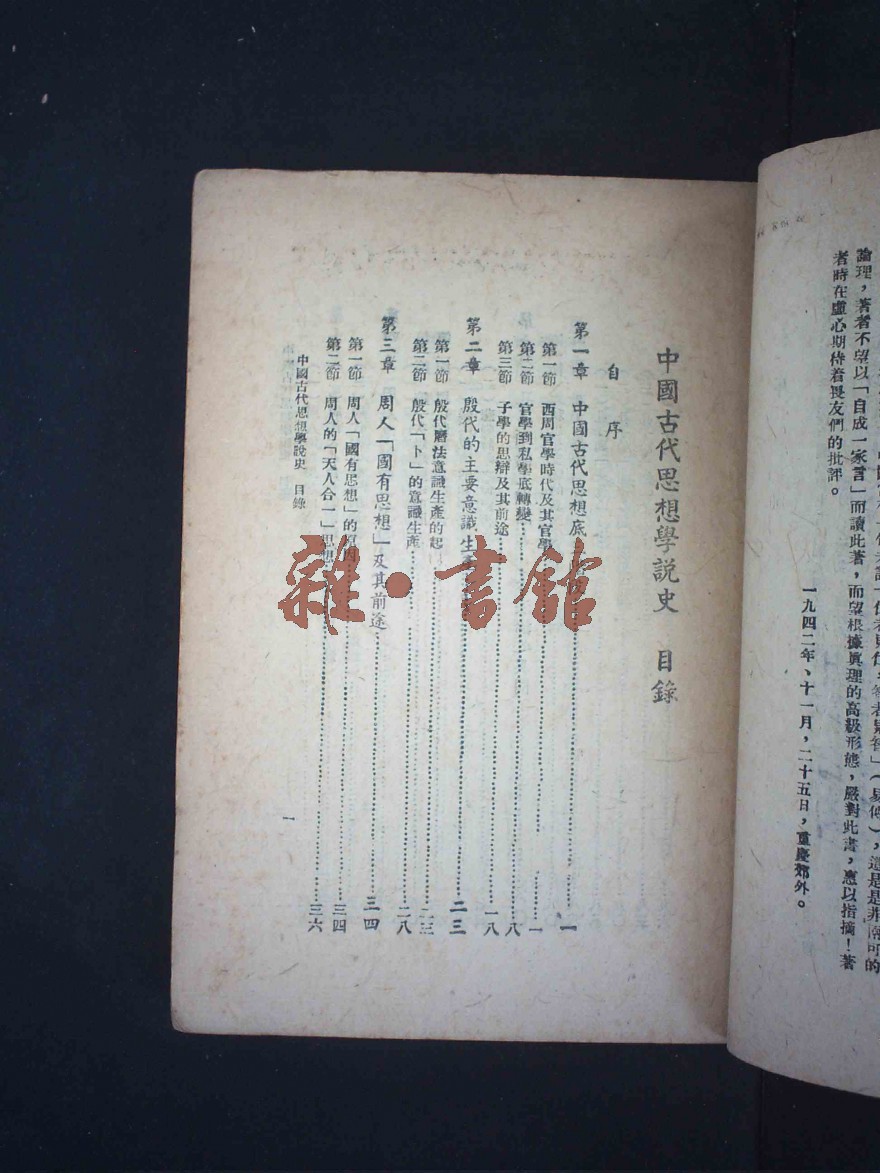 論理，著者不望以「自成一家言」而讀此著，而望根據眞理的高級形態，嚴對此書，惠以指摘！著
者時在虛心期待着畏友們的批評。
一九四二年、十一月，二十五日，重慶郊外。
中國古代思想學說史 目錄
自序
第一章 中國古代思想底 一
第一節 西周官學時代及其官學 一
第二節 官學到私學底轉變 八
第三節 子學的思辯及其前途 一八
第二章 殷代的主要意識生 二三
第一節 殷代曆法意識生產的起 二三
第二節 殷代「卜」的意識生產 二八
第三章 周人「國有思想」及其前途 三四
第一節 周人「國有思想」的 三四
第二節 周人的「天人合一」思想 三六
中國古代思想學說史 目錄
一
雜·書館